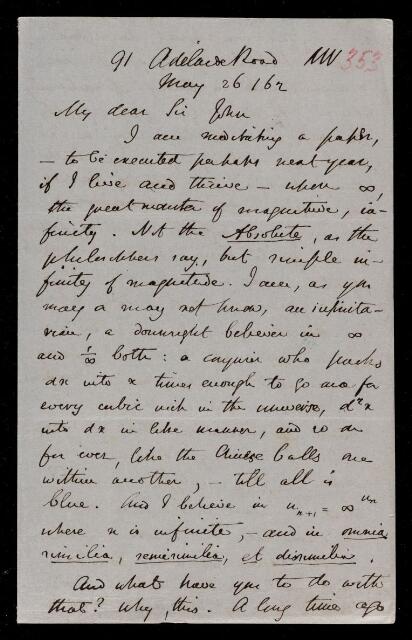 91 Adelaide Road NW 353
May 26/62
My dear Sir John
I am meditating a paper,
— to be executed perhaps next year,
if I live and thrive — upon ∞,
the great monster of magnitude, in-
finity. Not the Absolute, as the
philosophers say, but simple in-
finity of magnitude. I am, as you
may or may not know, an infinita-
rian, a downright believer in ∞
and 1/∞ both: a conjuror who packs
dx into x times enough to go once for
every cubic inch in the universe, d²x
into dx in like manner, and so on
for ever, like the Chinese balls one
within another, — till all is
blue. And I believe in u_{n+1} = ∞^{u_n}
where n is infinite, — and in omnia
similia, semisimilia, et dissimilia.
And what have you to do with
that? Why, this. A long time ago